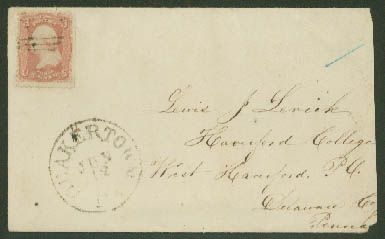 QUAKERTOWN
Lewis J Levick
Haverford College
West Haverford P.O.
Delaware Co
Penna